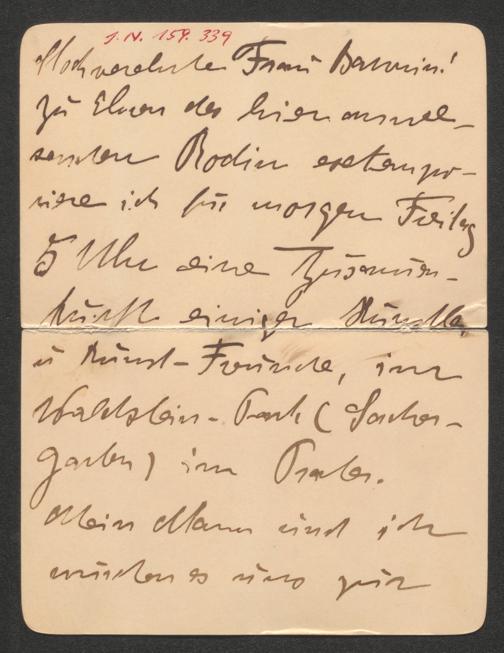 J. N. 159.339
Hochverehrte Frau Baronin!
zu Ehren des hier anwe-
senden Rodin extempo-
riere ich für morgen Freitag
5 Uhr eine Zusammen-
kunft einiger Künstler
u Kunst-Freunde, im
Waldstein-Park (Sacher-
garten) im Prater.
Mein Mann und ich
würden es uns zur